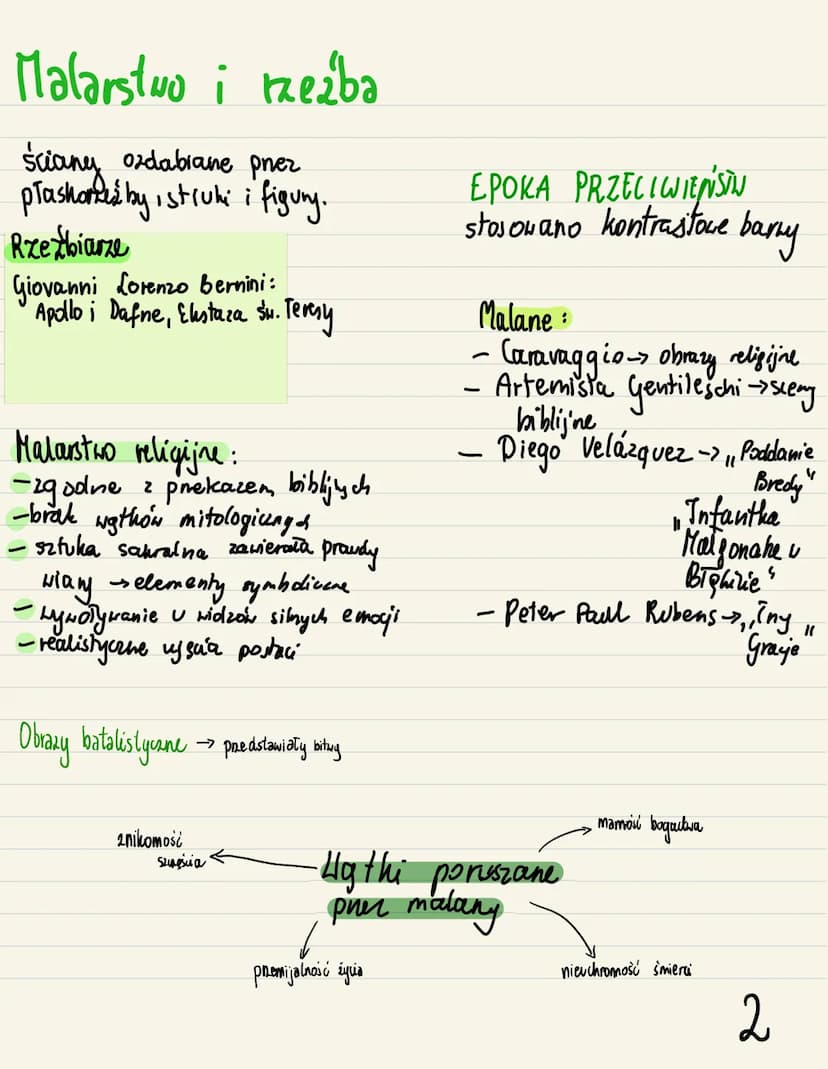 Malarstwo i rzeźba
ściany ozdabiane przez
płaskorzeźby, stiuki i figury.
Rzeźbiarze
Giovanni Lorenzo Bernini:
Apollo i Dafne, Ekstaza św. Teresy
Malarstwo religijne:
- zgodne z przekazem biblijnych
- brak wątków mitologicznych
- sztuka sakralna zawierała prawdy
wiary → elementy symboliczne
- wywoływanie u widzów silnych emocji
- realistyczne ujęcia postaci
EPOKA PRZECIWIEŃSTW
stosowano kontrastowe barwy
Malarze:
- Caravaggio → obrazy religijne
- Artemista Gentileschi → sceny
biblijne
- Diego Velázquez → „Poddanie
Bredy"
„Infantka
Małgorzata w
Błękicie"
- Peter Paul Rubens → „Trzy
Gracje"
Obrazy batalistyczne → przedstawiały bitwy
znikomość
szczęścia
marność bogactwa
Wątki poruszane
przez malarzy
przemijalność życia
nieuchronność śmierci
2